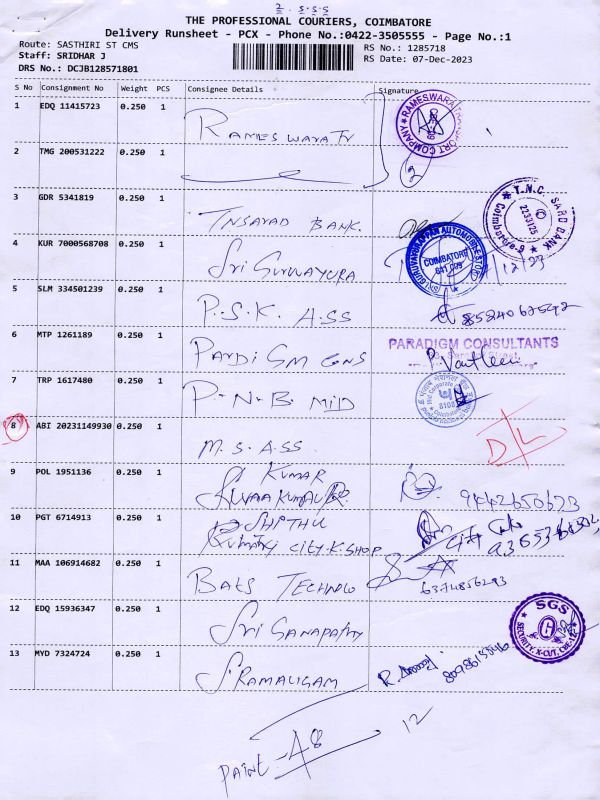 2. S.S.S
THE PROFESSIONAL COURIERS, COIMBATORE
Delivery Runsheet - PCX - Phone No.:0422-3505555 - Page No.:1
Route: SASTHIRI ST CMS
RS No.: 1285718
Staff: SRIDHAR J
RS Date: 07-Dec-2023
DRS No.: DCJB128571801
S No Consignment No Weight PCS Consignee Details Signature
1 EDQ 11415723 0.250 1
RAMESWARA TV
RAMESWARA TRANSPORT COMPANY
2 TMG 200531222 0.250 1
2
3 GDR 5341819 0.250 1
TNSAYAD BANK.
T.N.C. SARD BANK
Coimbatore-6
4 KUR 7000568708 0.250 1
Sri GURUVAYURA
SRI GURUVAYURAPPAN AUTOMOBILE STORE
COIMBATORE
5 SLM 334501239 0.250 1
P.S.K. A.SS
6 MTP 1261189 0.250 1
PARDIGM CONS
PARADIGM CONSULTANTS
7 TRP 1617480 0.250 1
P.N.B. MID
8 ABI 20231149930 0.250 1
M.S.A.SS
D/L
9 POL 1951136 0.250 1
S KUMAR
9442650673
10 PGT 6714913 0.250 1
CITY.K.SHOP
11 MAA 106914682 0.250 1
BATS TECHNOLO
6374856293
12 EDQ 15936347 0.250 1
Sri GANAPATHY
SGS
SECURITY, X-CUT, CBE-12
13 MYD 7324724 0.250 1
S.RAMALIGAM
12
PAINT - 48